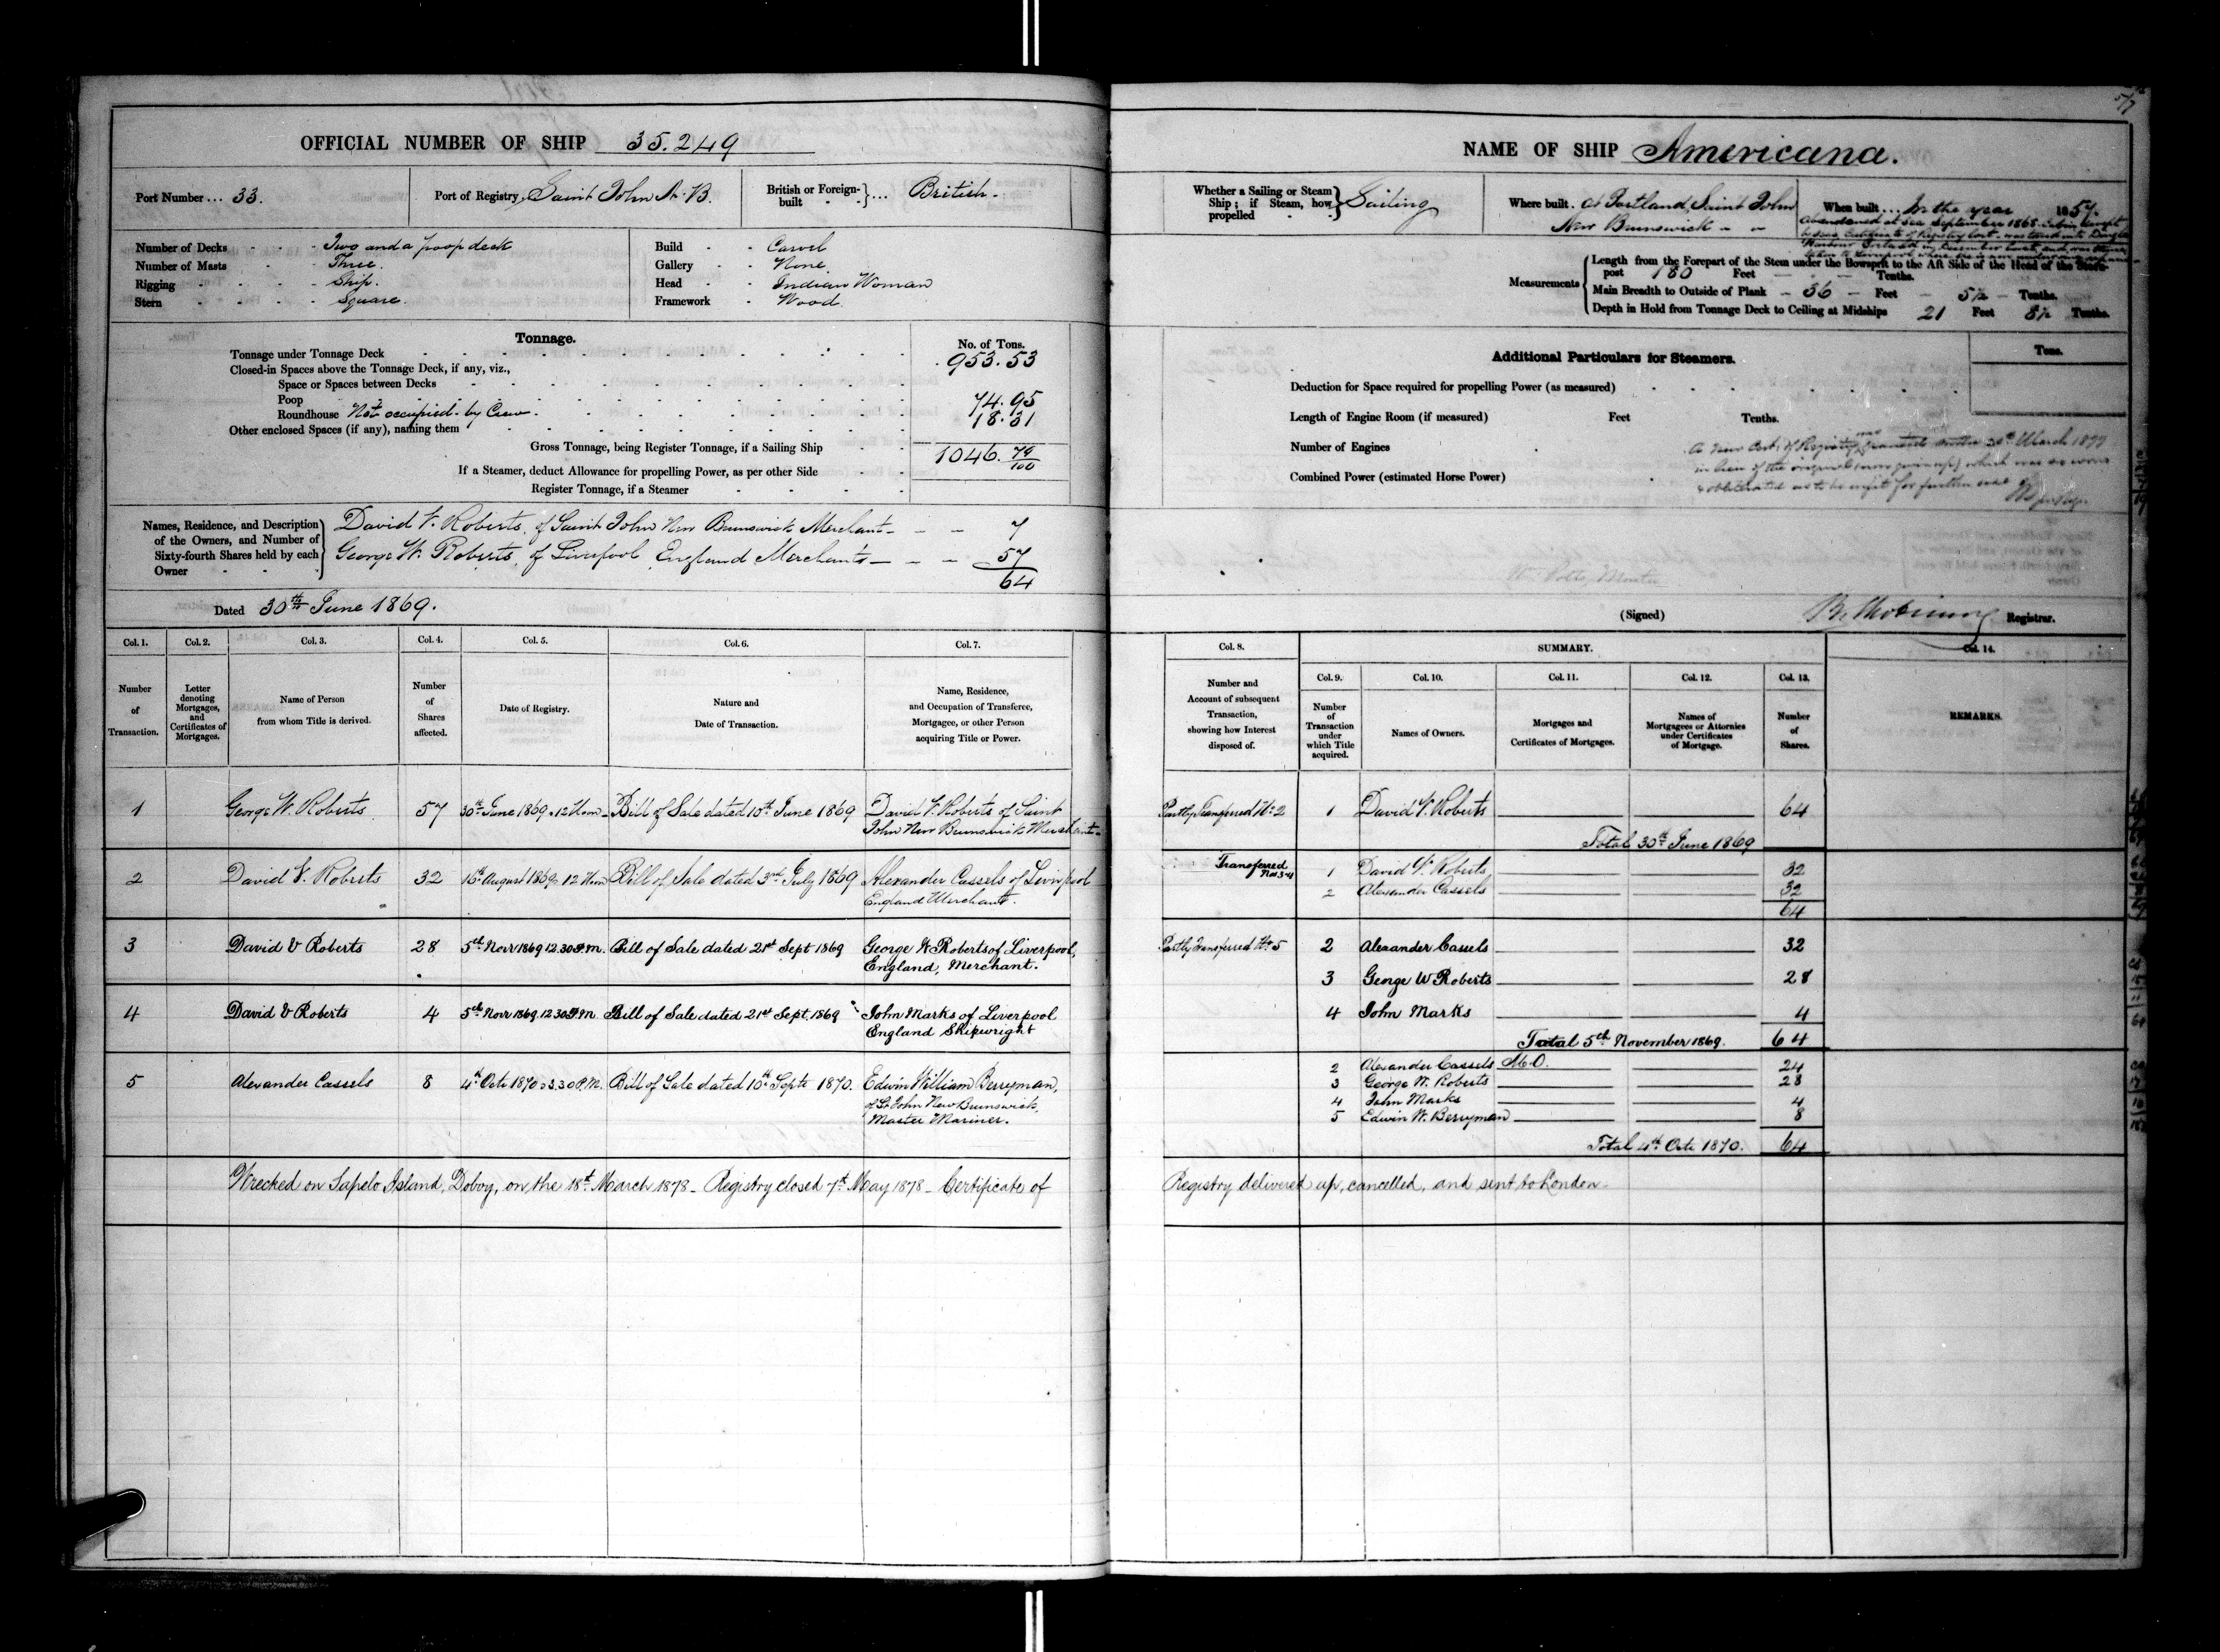 OFFICIAL NUMBER OF SHIP 35.249
Port Number ... 33.
Port of Registry, Saint John N.B.
British or Foreign-built ... British.
Number of Decks - - Two and a poop deck
Number of Masts - - Three.
Rigging - - Ship.
Stern - - Square.
Build - - Carvel
Gallery - - None
Head - - Indian Woman
Framework - Wood
Tonnage.
No. of Tons.
Tonnage under Tonnage Deck 953.53
Closed-in Spaces above the Tonnage Deck, if any, viz.,
Space or Spaces between Decks
Poop 74.95
Roundhouse Not occupied by Crew. 18.31
Other enclosed Spaces (if any), naming them
Gross Tonnage, being Register Tonnage, if a Sailing Ship 1046. 79/100
If a Steamer, deduct Allowance for propelling Power, as per other Side
Register Tonnage, if a Steamer
Names, Residence, and Description of the Owners, and Number of Sixty-fourth Shares held by each Owner
David V. Roberts, of Saint John New Brunswick Merchant - - 7
George W. Roberts, of Liverpool England Merchants - - 57
64
Dated 30th June 1869.
Col. 1. Col. 2. Col. 3. Col. 4. Col. 5. Col. 6. Col. 7.
Number of Transaction.
Letter denoting Mortgages, and Certificates of Mortgages.
Name of Person from whom Title is derived.
Number of Shares affected.
Date of Registry.
Nature and Date of Transaction.
Name, Residence, and Occupation of Transferee, Mortgagee, or other Person acquiring Title or Power.
1 George W. Roberts 57 30th June 1869. 12 Noon Bill of Sale dated 10th June 1869 David V. Roberts of Saint
John New Brunswick Merchant
2 David V. Roberts 32 16th August 1869 12 Noon Bill of Sale dated 3rd July 1869 Alexander Cassels of Liverpool
England Merchant.
3 David V Roberts 28 5th Novr 1869 12.30 P.M. Bill of Sale dated 21st Sept 1869 George W. Roberts of Liverpool,
England, Merchant.
4 David V Roberts 4 5th Novr 1869 12.30 P.M. Bill of Sale dated 21st Sept. 1869 John Marks of Liverpool
England Shipwright
5 Alexander Cassels 8 4th Octr 1870 3.30 P.M. Bill of Sale dated 10th Septr 1870. Edwin William Berryman,
of St John New Brunswick,
Master Mariner.
Wrecked on Sapelo Island, Doboy, on the 18th March 1878 - Registry closed 7th May 1878 - Certificate of
NAME OF SHIP Americana.
Whether a Sailing or Steam Ship; if Steam, how propelled Sailing
Where built. at Portland, Saint John
New Brunswick
When built ... In the year 1857.
Abandoned at sea September 1868
Certificate of Registry lost
Measurements
Length from the Forepart of the Stem under the Bowsprit to the Aft Side of the Head of the Stern-post 180 Feet - Tenths.
Main Breadth to Outside of Plank - 36 - Feet - 5/2 - Tenths.
Depth in Hold from Tonnage Deck to Ceiling at Midships 21 Feet 8/2 Tenths.
Additional Particulars for Steamers.
Tons.
Deduction for Space required for propelling Power (as measured)
Length of Engine Room (if measured) Feet Tenths.
Number of Engines
Combined Power (estimated Horse Power)
A New Cert. of Registry was granted March
in lieu of the original (now given up) which was so worn
& obliterated as to be unfit for further use
Wm Potts, Master
(Signed) Registrar.
Col. 8. SUMMARY. Col. 14.
Col. 9. Col. 10. Col. 11. Col. 12. Col. 13.
Number and Account of subsequent Transaction, showing how Interest disposed of.
Number of Transaction under which Title acquired.
Names of Owners.
Mortgages and Certificates of Mortgages.
Names of Mortgagees or Attornies under Certificates of Mortgage.
Number of Shares.
REMARKS.
Partly Transferred No 2 1 David V. Roberts 64
Total 30th June 1869
Transferred Nos 3-4 1 David V. Roberts 32
2 Alexander Cassels 32
64
Partly Transferred No 5 2 Alexander Cassels 32
3 George W Roberts 28
4 John Marks 4
Total 5th November 1869. 64
2 Alexander Cassels M.O. 24
3 George W. Roberts 28
4 John Marks 4
5 Edwin W. Berryman 8
Total 4th Octr 1870. 64
Registry delivered up, cancelled, and sent to London